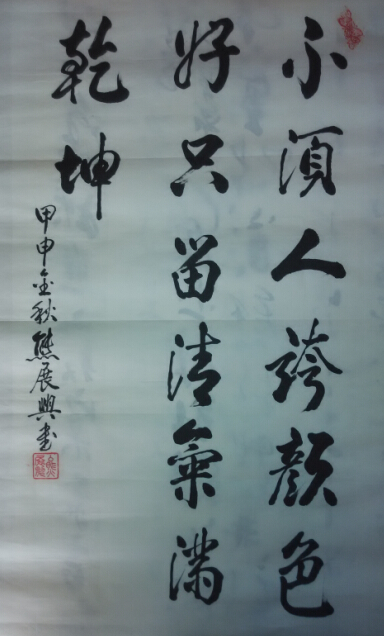 不須人誇顏色
好只留清氣滿
乾坤
甲申金秋熊展興書